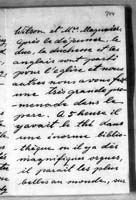 et Mme
Après le déjeuner, le
duc, la duchesse et les
anglais sont partis
pour l'église et nous
autres nous avons fait
une très grande pro-
menade dans le
parc. A 5 heure il
y avait le thé dans
une énorme biblio-
thèque ou il y a des
magnifiques orgues,
il parait les plus
belles au monde, on